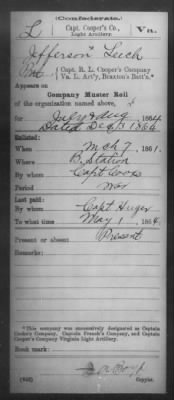 (Confederate.)
L Capt. Cooper's Co., Va.
Light Artillery.
Jefferson Leich
Pvt, Capt. R. L. Cooper's Company
Va. L. Art'y, Braxton's Batt'n.*
Appears on
Company Muster Roll
of the organization named above,
for July & Aug, 1864
Dated Dec 13 1864
Enlisted:
When Mch 7, 1861.
Where B. Station
By whom Capt Cooke
Period War
Last paid:
By whom Capt Huger
To what time May 1, 1864.
Present or absent Present
Remarks:
*This company was successively designated as Captain
Cooke's Company, Captain French's Company, and Captain
Cooper's Company Virginia Light Artillery.
Book mark:
(642) Copyist.